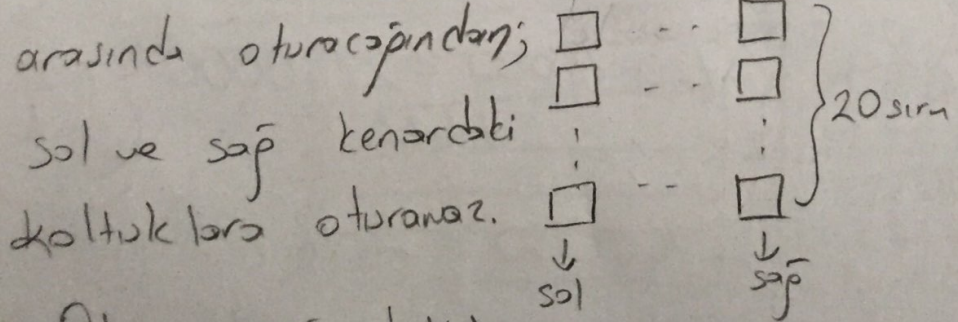 arasında oturacağından;
sol ve sağ kenardaki
koltuklara oturamaz.
20 sıra
sol
sağ